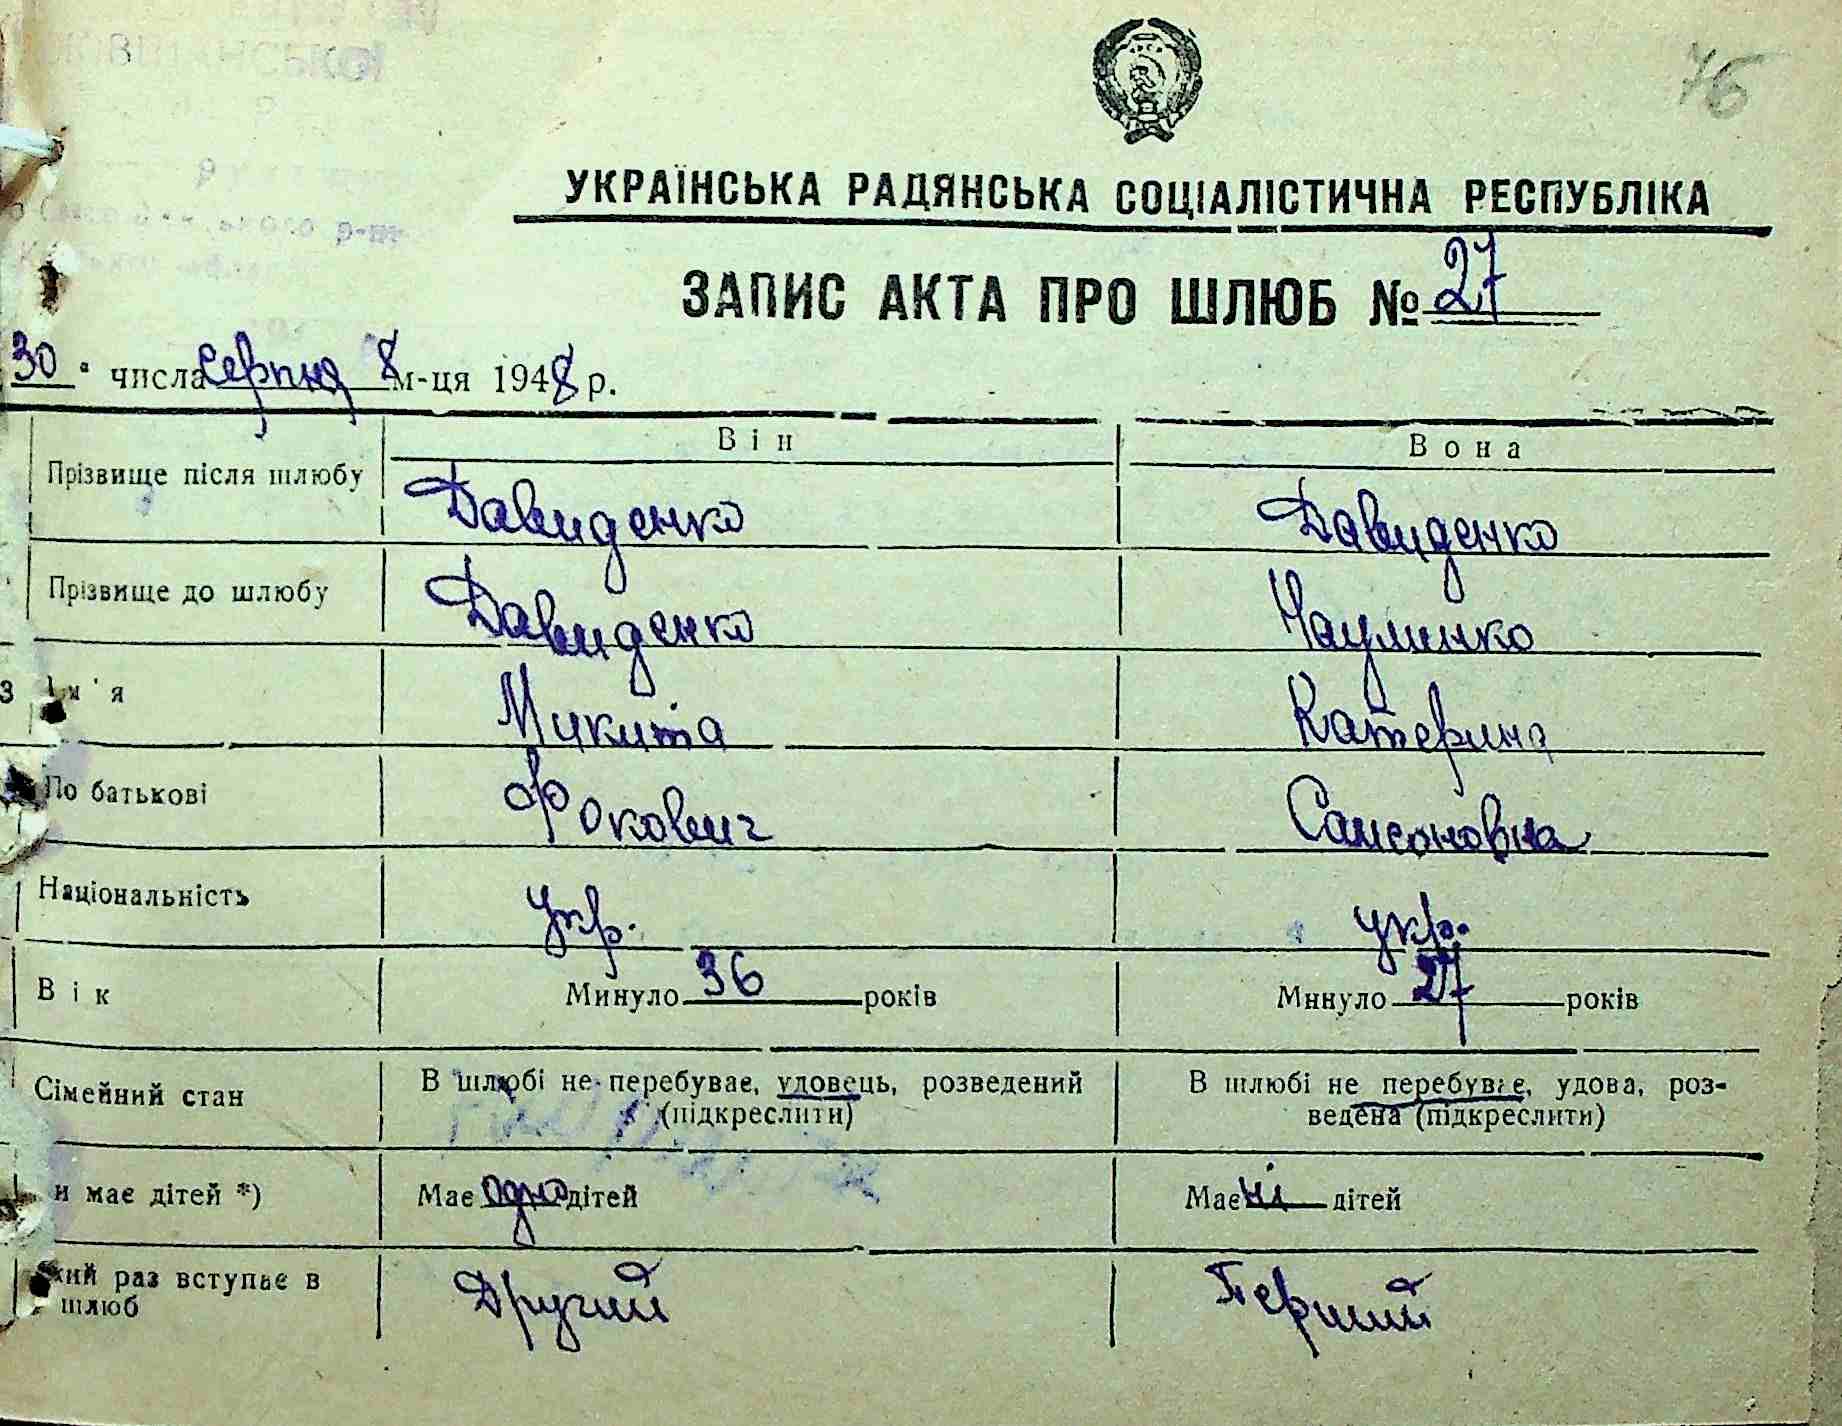 76
УКРАЇНСЬКА РАДЯНСЬКА СОЦІАЛІСТИЧНА РЕСПУБЛІКА
ЗАПИС АКТА ПРО ШЛЮБ № 27
30 " числа серпня 8 м-ця 1948 р.
Він Вона
Прізвище після шлюбу Давиденко Давиденко
Прізвище до шлюбу Давиденко Науменко
З Ім'я Микита Катерина
По батькові Фокович Самсоновна
Національність укр. укр.
Вік Минуло 36 років Минуло 27 років
Сімейний стан В шлюбі не перебуває, удовець, розведений (підкреслити) В шлюбі не перебуває, удова, роз-
ведена (підкреслити)
и має дітей *) Має одно дітей Має ні дітей
кий раз вступає в Другий Перший
шлюб